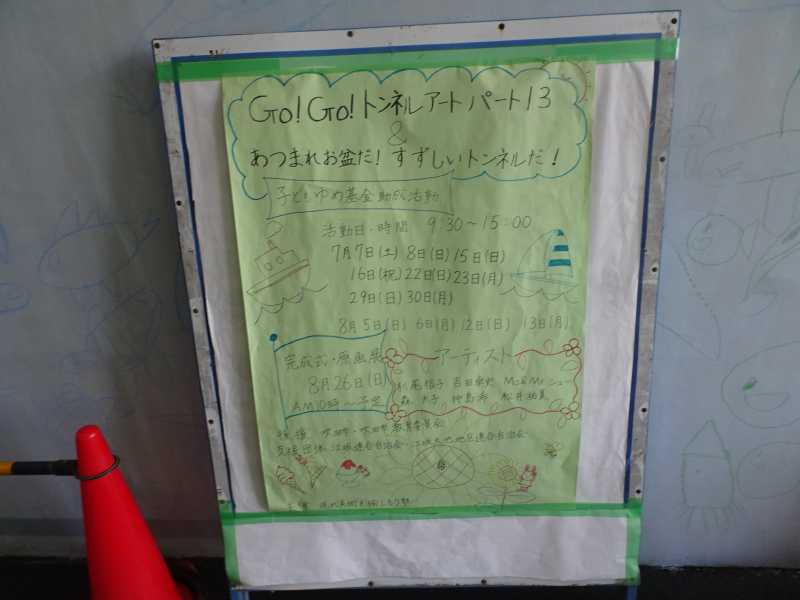 Go! Go! トンネルアート パート13
&
あつまれお盆だ! すずしいトンネルだ!
子どもゆめ基金助成活動
活動日・時間 9:30〜15:00
7月7日(土) 8日(日) 15日(日)
16日(祝) 22日(日) 23日(月)
29日(日) 30日(月)
8月5日(日) 6日(月) 12日(日) 13日(月)
完成式・原画展
8月26日(日)
AM10時〜予定
アーティスト
杉尾信子 吉田 Ms&Mr シュー
森 大子 仲島 希 松井祐美
後援 吹田市・吹田市教育委員会
支援団体 江坂連合自治会・江坂大池地区連合自治会
主催